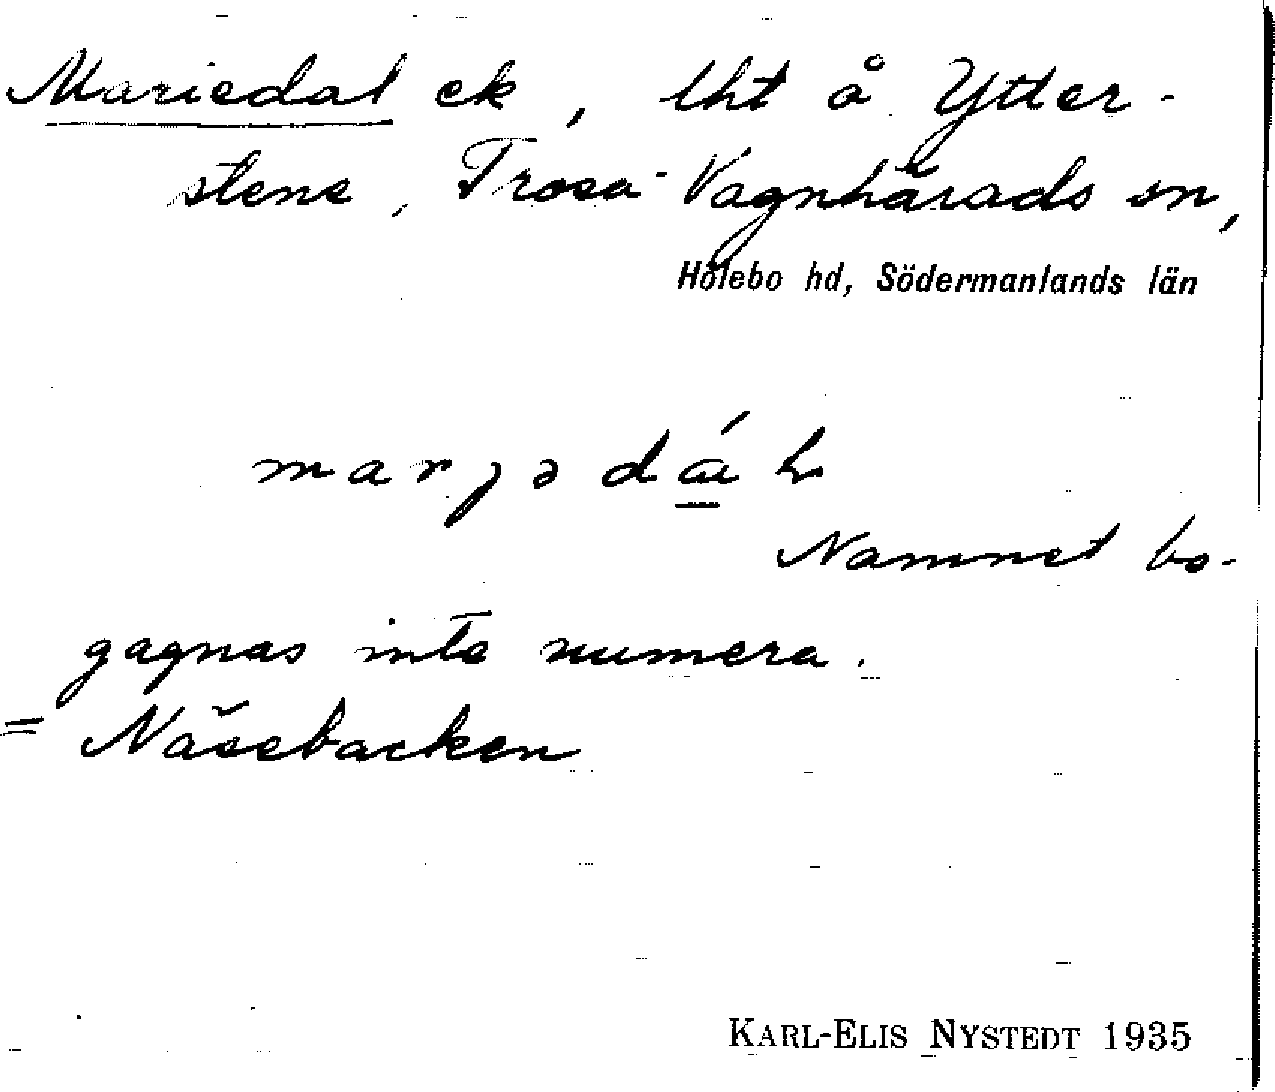 Mariedal ek, lht å Ytter-
stene, Trosa-Vagnhärads sn,
Hölebo hd, Södermanlands län
marjədá̱l
Namnet be-
gagnas inte numera.
= Näsebacken
KARL-ELIS NYSTEDT 1935